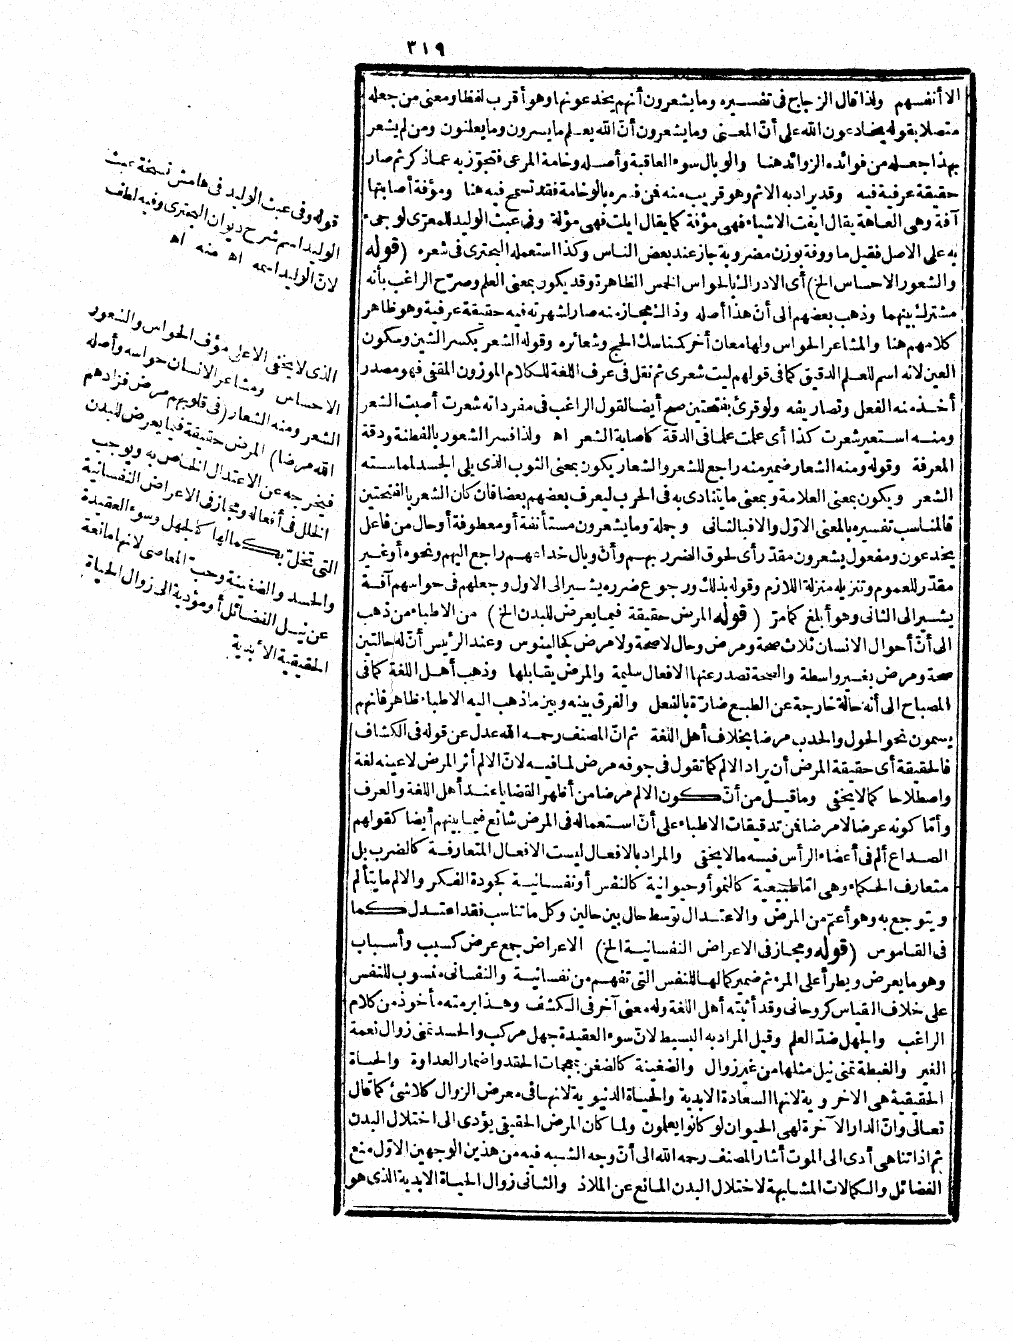 ٣١٩
الا أنفسهم ولذا قال الزجاج فى تفسيره وما يشعرون أنهم يخدعونها وهو أقرب لفظا ومعنى من جعله
متصلا بقوله يخادعون الله على أنّ المعنى وما يشعرون أنّ الله يعلم ما يسرون وما يعلنون ومن لم يشعر
بهذا جعله من فوائده الزوائد هنا والوبال سوء العاقبة وأصله وخامة المرعى فتجوّز به عما ذكر ثم صار
حقيقة عرفية فيه وقد يراد به الاثم وهو قريب منه فمن فسره بالوخامة فقد تسمح فيه هنا ومؤفة أصابتها
آفة وهى العاهة يقال ايفت الاشياء فهى مؤفة كما يقال ايلت فهى مؤلة وفى عبث الوليد للمعرّى لو جىء
به على الاصل فقيل مأووفة بوزن مضروبة جاز عند بعض الناس وكذا استعمله البحترى فى شعره (قوله
والشعور الاحساس الخ) أى الادراك بالحواس الخمس الظاهرة وقد يكون بمعنى العلم وصرّح الراغب بأنه
مشترك بينهما وذهب بعضهم الى أنّ هذا أصله وذاك مجاز منه صار لشهرته فيه حقيقة عرفية وهو ظاهر
كلامهم هنا والمشاعر الحواس ولها معان أخر كمناسك الحج وشعائره وقوله الشعر بكسر الشين وسكون
العين لانه اسم للعلم الدقيق كما فى قولهم ليت شعرى ثم نقل فى عرف اللغة للكلام الموزون المقفى فهو مصدر
أخذ منه الفعل وتصاريفه ولو قرئ بفتحتين صح أيضا لقول الراغب فى مفرداته شعرت أصبت الشعر
ومنه استعير شعرت كذا أى علمت علما فى الدقة كاصابة الشعر اه ولذا فسر الشعور بالفطنة ودقة
المعرفة وقوله ومنه الشعار ضمير منه راجع للشعر والشعار يكون بمعنى الثوب الذى يلى الجسد لماسته
الشعر ويكون بمعنى العلامة وبمعنى ما يتنادى به فى الحرب ليعرف بعضهم بعضا فان كان الشعر بالفتحتين
فالمناسب تفسيره بالمعنى الاوّل والا فبالثانى وجملة وما يشعرون مستأنفة أو معطوفة أو حال من فاعل
يخدعون ومفعول يشعرون مقدّر أى لحوق الضرر بهم وأن وبال خداعهم راجع اليهم ونحوه أو غير
مقدّر للعموم وتنزيله منزلة اللازم وقوله بذلك ورجوع ضرره يشير الى الاول وجعلهم فى حواسهم آفة
يشير الى الثانى وهو أبلغ كما مرّ (قوله المرض حقيقة فيما يعرض للبدن الخ) من الاطباء من ذهب
الى أنّ أحوال الانسان ثلاث صحة ومرض وحال لا صحة ولا مرض كجالينوس وعند الرئيس أنّ له حالتين
صحة ومرض بغير واسطة والصحة تصدر عنها الافعال سليمة والمرض يقابلها وذهب أهل اللغة كما فى
المصباح الى أنه حالة خارجة عن الطبع ضارّة بالفعل والفرق بينه وبين ما ذهب اليه الاطباء ظاهر فانهم
يسمون نحو الحول والحدب مرضا بخلاف أهل اللغة ثم انّ المصنف رحمه الله عدل عن قوله فى الكشاف
فالحقيقة أى حقيقة المرض أن يراد الالم كما تقول فى جوفه مرض لما فيه لانّ الالم أثر المرض لا عينه لغة
واصطلاحا كما لا يخفى وما قيل من أنّ كون الالم مرضا من أظهر القضايا عند أهل اللغة والعرف
وأمّا كونه عرضا لا مرضا فمن تدقيقات الاطباء على أنّ استعماله فى المرض شائع فيما بينهم أيضا كقولهم
الصداع ألم فى أعضاء الرأس فيه ما لا يخفى والمراد بالافعال ليست الافعال المتعارفة كالضرب بل
متعارف الحكماء وهى امّا طبيعية كالنموّ أو حيوانية كالنفس أو نفسانية كجودة الفكر والالم ما يتألم
ويتوجع به وهو أعمّ من المرض والاعتدال توسط حال بين حالين وكل ما تناسب فقد اعتدل كما
فى القاموس (قوله ومجاز فى الاعراض النفسانية الخ) الاعراض جمع عرض كسبب وأسباب
وهو ما يعرض ويطرأ على المرء ثم ضمير كمالها للنفس التى تفهم من نفسانية والنفسانى منسوب للنفس
على خلاف القياس كروحانى وقد أثبته أهل اللغة وله معنى آخر فى الكشف وهذا برمته مأخوذ من كلام
الراغب والجهل ضدّ العلم وقيل المراد به البسيط لانّ سوء العقيدة جهل مركب والحسد تمنى زوال نعمة
الغير والغبطة تمنى نيل مثلها من غير زوال والضغينة كالضغن بمعجمات الحقد واضمار العداوة والحياة
الحقيقية هى الاخروية لانها السعادة الابدية والحياة الدنيوية لانها فى معرض الزوال كلا شئ كما قال
تعالى وانّ الدار الآخرة لهى الحيوان لو كانوا يعلمون ولما كان المرض الحقيقى يؤدى الى اختلال البدن
ثم اذا تناهى أدى الى الموت أشار المصنف رحمه الله الى أنّ وجه الشبه فيه من هذين الوجهين الاوّل منع
الفضائل والكمالات المشابهة لاختلال البدن المانع عن الملاذ والثانى زوال الحياة الابدية الذى هو
قوله وفى عبث الوليد فى هامش نسخة عبث
الوليد اسم شرح ديوان البحترى وفيه لطف
لانّ الوليد اسمه اه منه اه
الذى لا يخفى الا على مؤف الحواس والشعور
الاحساس ومشاعر الانسان حواسه وأصله
الشعر ومنه الشعار (فى قلوبهم مرض فزادهم
الله مرضا) المرض حقيقة فيما يعرض للبدن
فيخرجه عن الاعتدال الخاص به ويوجب
الخلل فى أفعاله ومجاز فى الاعراض النفسانية
التى تخلّ بكمالها كالجهل وسوء العقيدة
والحسد والضغينة وحب المعاصى لانها مانعة
عن نيل الفضائل أو مؤدية الى زوال الحياة
الحقيقية الأبدية